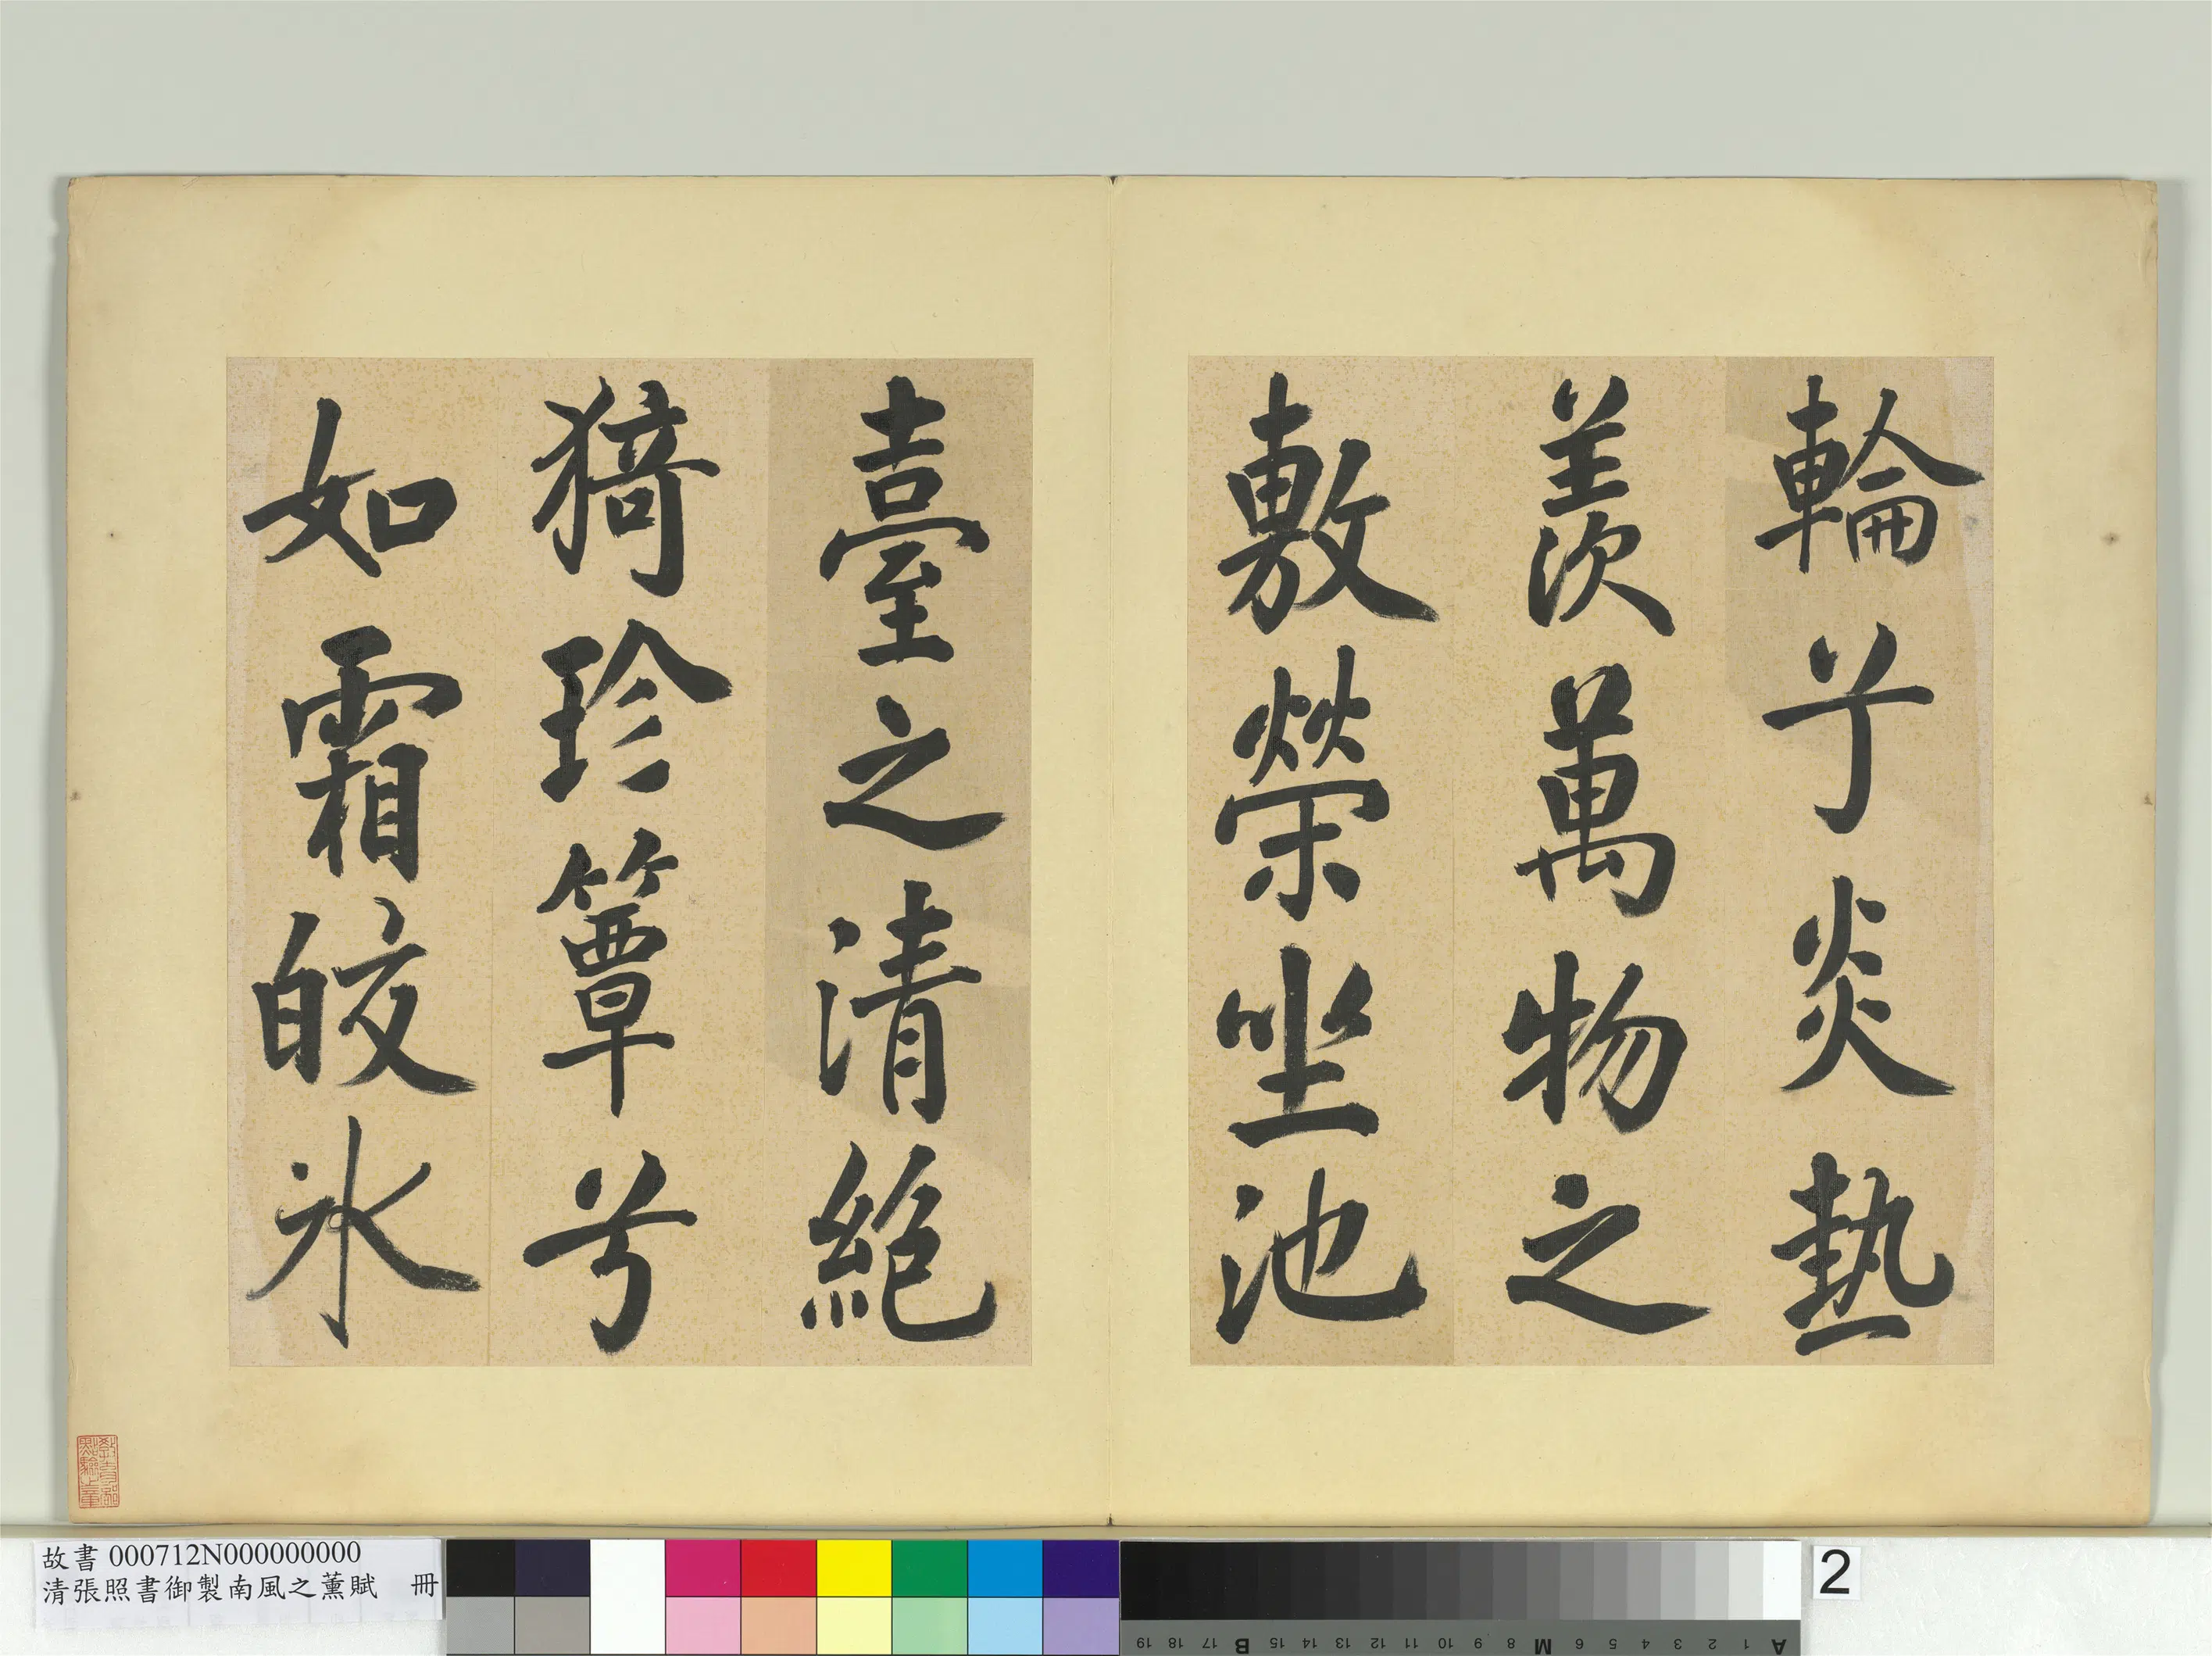 輪兮炎熱
羨萬物之
敷榮坐池
臺之清絕
猗珍簟兮
如霜皎冰
教育部點驗之章
故書 000712N000000000
清張照書御製南風之薰賦 冊
2
A 1 2 3 4 5 6 M 8 9 10 11 12 13 14 15 B 17 18 19